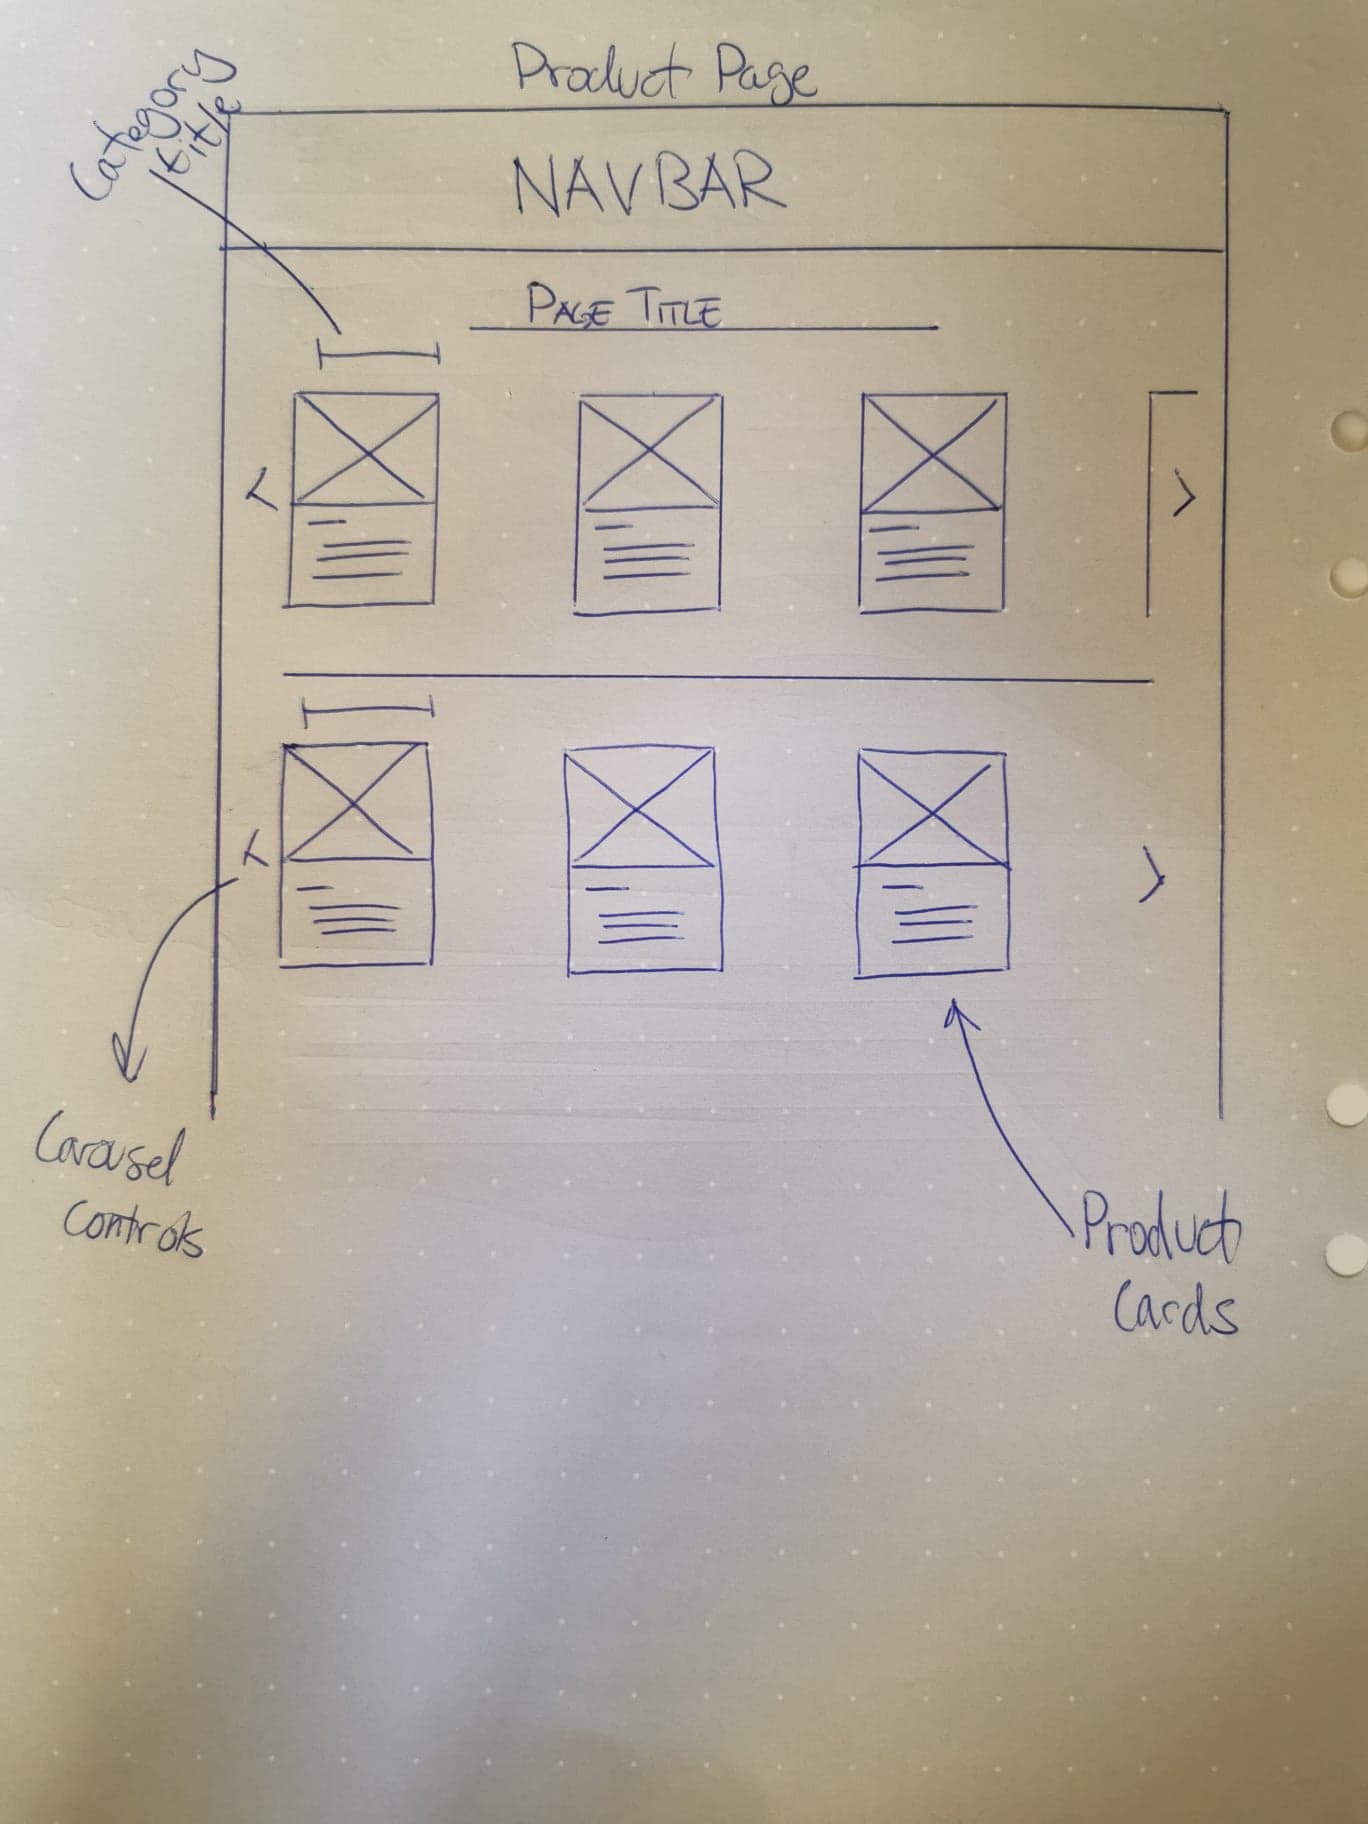 Product Page
Category
title
NAVBAR
PAGE TITLE
<
>
<
>
Carousel
Controls
Product
Cards